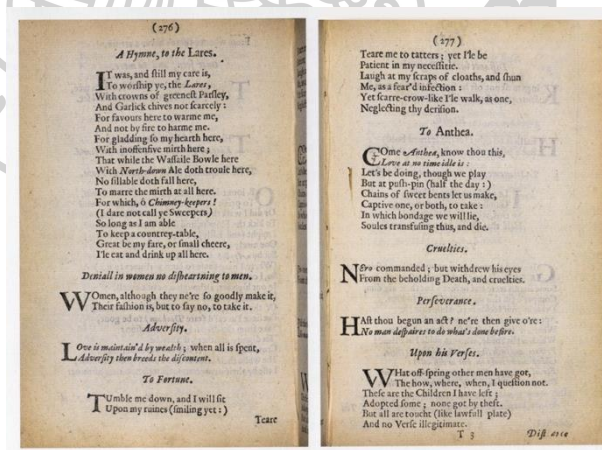 (276)
A Hymne, to the Lares.
IT was, and still my care is,
To worship ye, the Lares,
With crowns of greenest Parsley,
And Garlick chives not scarcely :
For favours here to warme me,
And not by fire to harme me.
For gladding so my hearth here,
With inoffensive mirth here ;
That while the Wassaile Bowle here
With North-down Ale doth troule here,
No sillable doth fall here,
To marre the mirth at all here.
For which, ô Chimney-keepers !
(I dare not call ye Sweepers)
So long as I am able
To keep a countrey-table,
Great be my fare, or small cheere,
I'le eat and drink up all here.
Deniall in women no disheartning to men.
WOmen, although they ne're so goodly make it,
Their fashion is, but to say no, to take it.
Adversity.
LOve is maintain'd by wealth ; when all is spent,
Adversity then breeds the discontent.
To Fortune.
TUmble me down, and I will sit
Upon my ruines (smiling yet : )
Teare
(277)
Teare me to tatters ; yet I'le be
Patient in my necessitie.
Laugh at my scraps of cloaths, and shun
Me, as a fear'd infection :
Yet scarre-crow-like I'le walk, as one,
Neglecting thy derision.
To Anthea.
COme Anthea, know thou this,
Love at no time idle is :
Let's be doing, though we play
But at push-pin (half the day : )
Chains of sweet bents let us make,
Captive one, or both, to take :
In which bondage we will lie,
Soules transfusing thus, and die.
Cruelties.
NEro commanded ; but withdrew his eyes
From the beholding Death, and cruelties.
Perseverance.
HAst thou begun an act ? ne're then give o're :
No man despaires to do what's done before.
Upon his Verses.
WHat off-spring other men have got,
The how, where, when, I question not.
These are the Children I have left ;
Adopted some ; none got by theft.
But all are toucht (like lawfull plate)
And no Verse illegitimate.
T 3